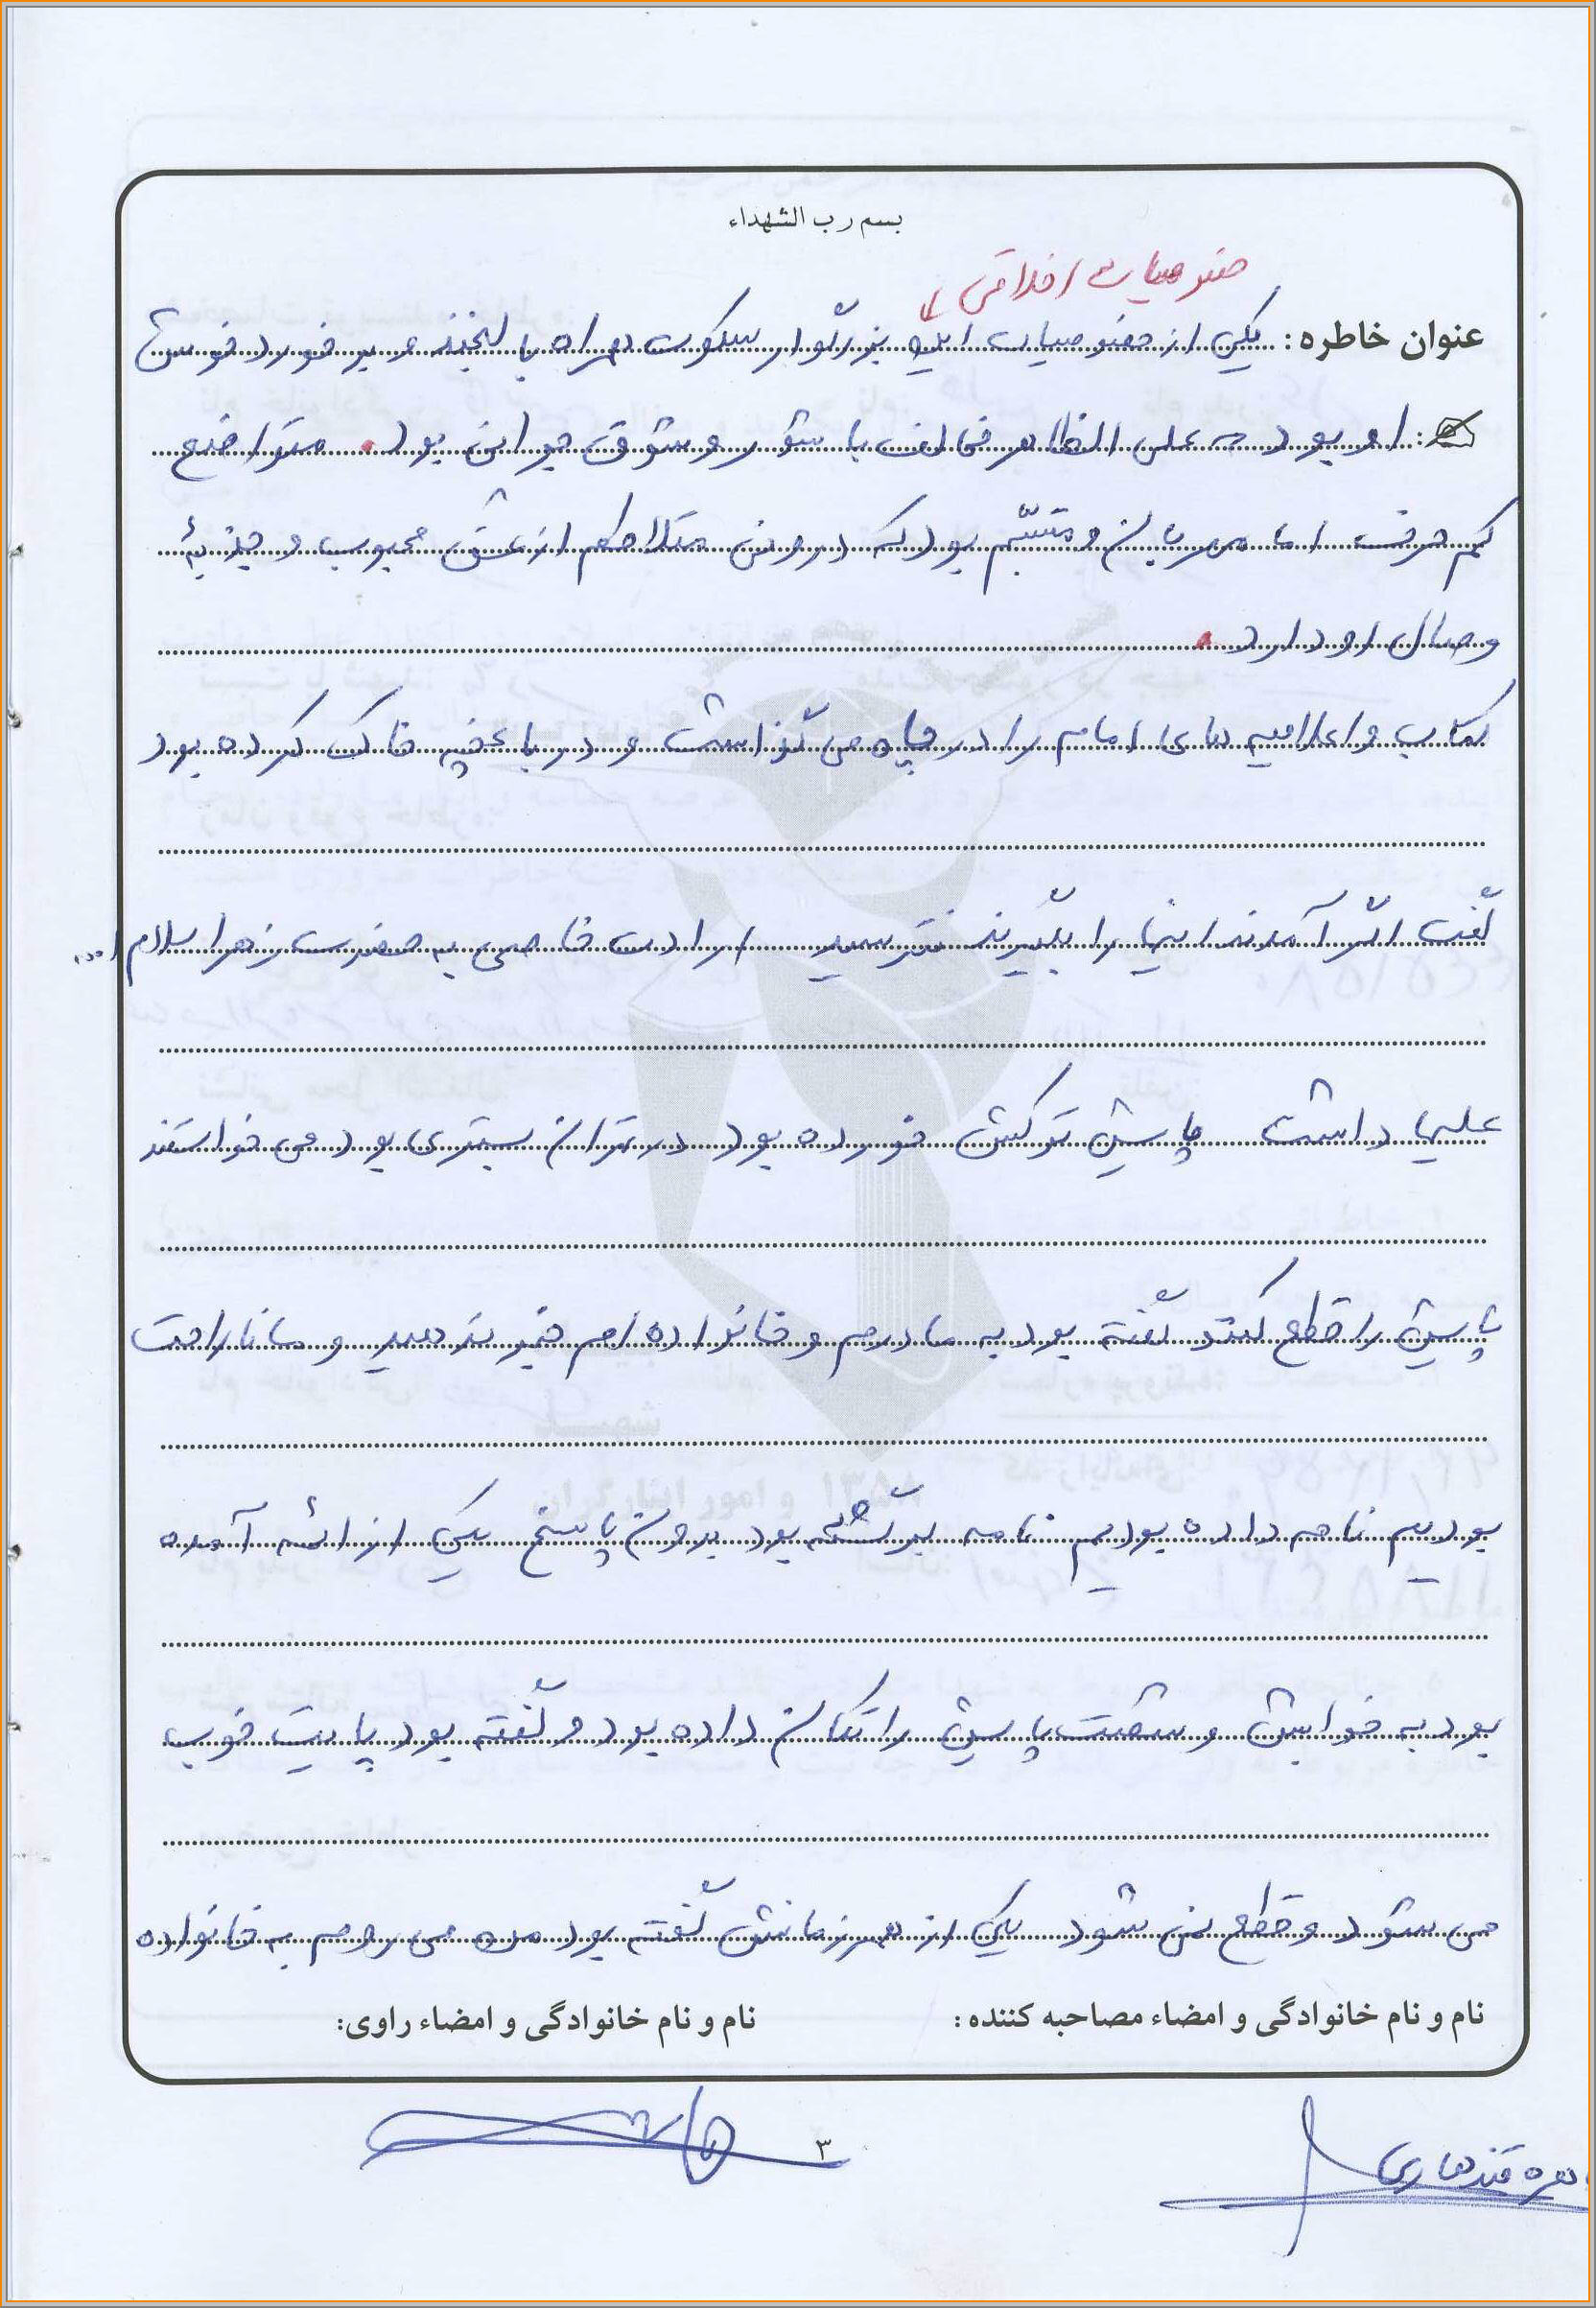 بسم رب الشهداء
خصوصیات اخلاقی
عنوان خاطره: یکی از خصوصیات این بزرگوار سکوت همراه با لبخند و برخورد خوش
او بود که علی الظاهر مخالف با شور و شوق جوانی بود. متواضع
کم حرف اما مهربان و متبسّم بود که درونش متلاطم از عشق محبوب و جذبۀ
وصال او دارد.
کتاب و اعلامیه های امام را در چاه می گذاشت و در باغچه خاک کرده بود
گفت اگر آمدند اینها را بگیرند نترسید ارادت خاصی به حضرت زهرا سلام ا...
علیها داشت پاهایش ترکش خورده بود در تهران بستری بود می خواستند
پایش را قطع کنند گفته بود به مادرم و خانواده ام خبر ندهید و ما ناراحت
بودیم نامه داده بودیم نامه برگشته بود بدون پاسخ یکی از ائمه آمده
بود به خوابش و شصت پایش را تکان داده بود و گفته بود پایت خوب
می شود و قطع نمی شود یکی از همرزمانش گفته بود من می روم به خانواده
نام و نام خانوادگی و امضاء مصاحبه کننده:
نام و نام خانوادگی و امضاء راوی:
۳
قندهاری